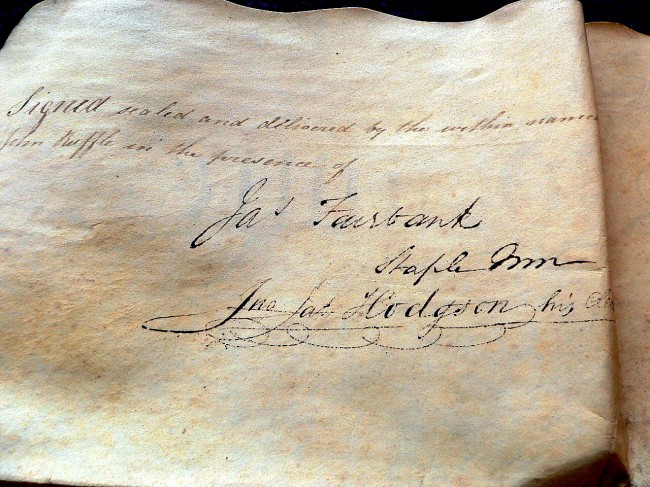 Signed sealed and delivered by the within name
John Ruffle in the presence of
Jaˢ Fairbank
Staple Inn
Jnº Jaˢ Hodgson his